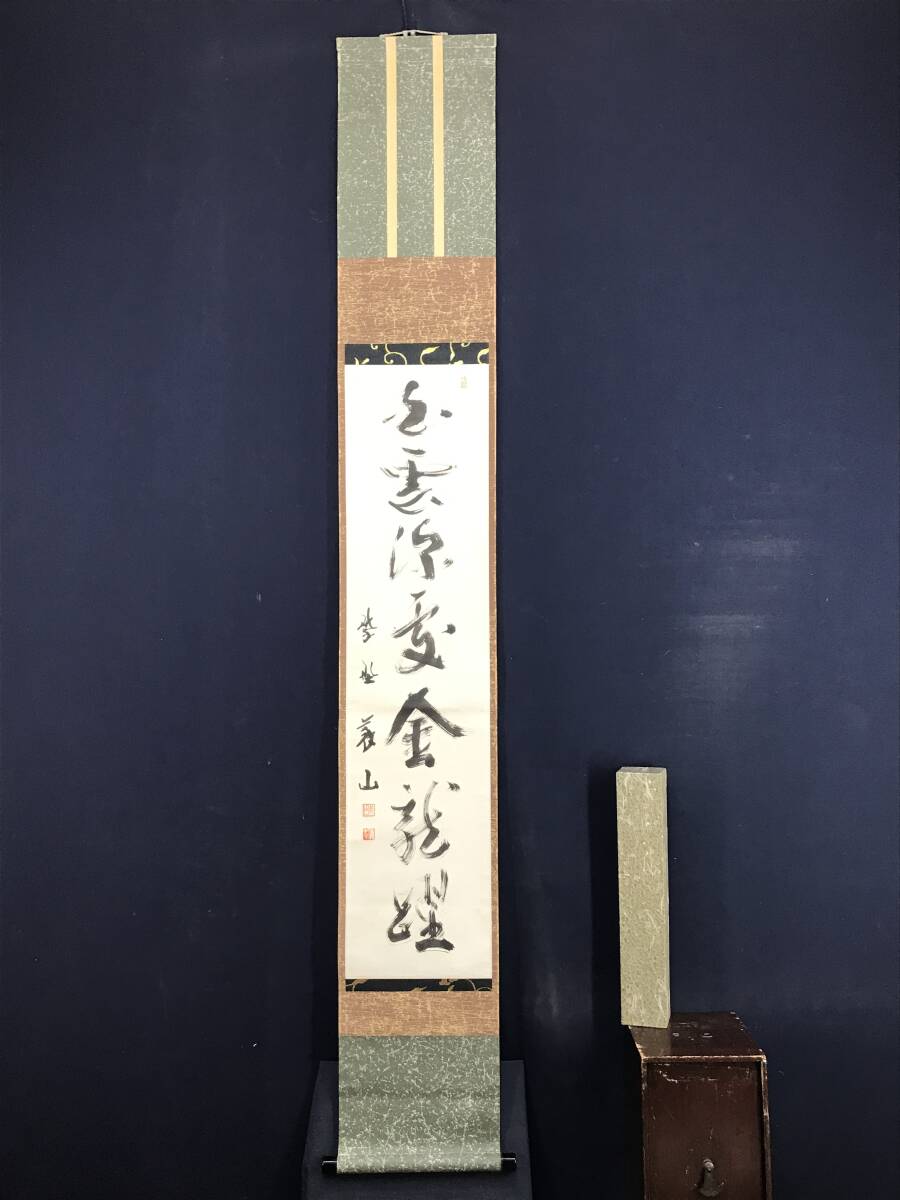 白雲深処金龍躍
紫野 義山